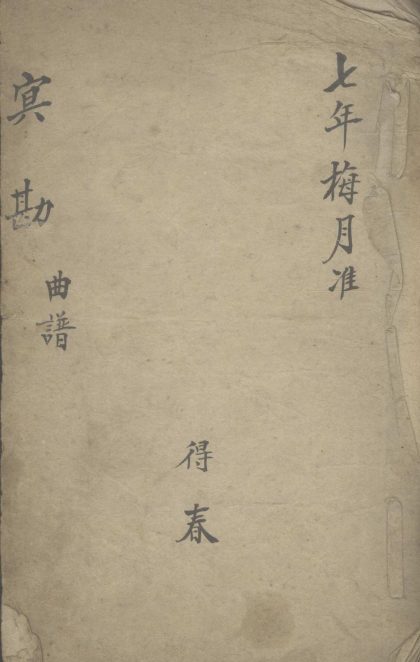 七年梅月准
得春
寘勘
曲譜